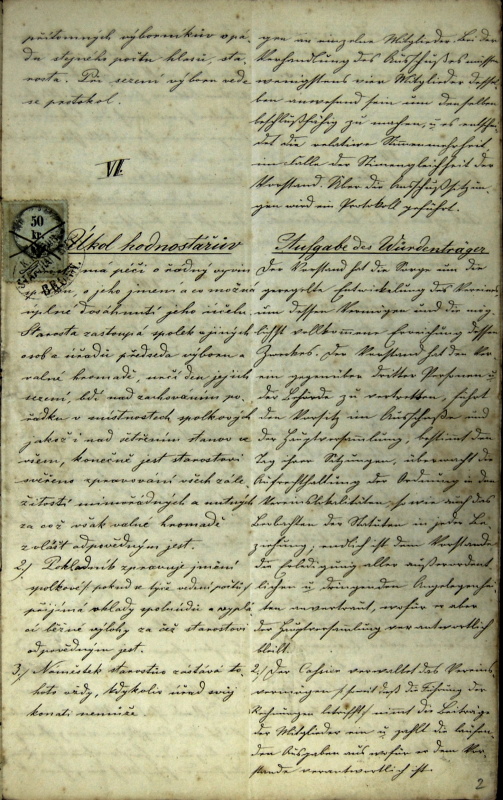 přítomných výborníkův v pá-
du stejného počtu hlasů, sta-
rosta. Při sezení výboru vede
se protokol.
VI.
Úkol hodnostářův
má péči o řádný vývin
o jeho jmění a co možná
úplné dosáhnutí jeho účelu.
Starosta zastoupá spolek u jiných
osob a úřadů předsedá výboru a
valné hromadě, určí den jejich
sezení, bdí nad zachováním po-
řádku v místnostech spolkových
jakož i nad šetřením stanov ve
všem, konečně jest starostovi
svěřeno spravování všech zále-
žitostí mimořádných a nutných
za což však valné hromadě
zvlášť odpovědným jest.
2./ Pokladník spravuje jmění
spolkové/ pokud se týče vedení počtů/
přijímá vklady spoluúdů a vyplá-
cí běžné výlohy za což starostovi
odpovědným jest.
3./ Náměstek starostův zastává to-
hoto vždy, kdykoliv úřad svůj
konati nemůže
gen an einzelne Mitglieder. Bei der
Verhandlung des Ausschußes müssen
wenigstens vier Mitglieder dessel-
ben anwesend sein um denselben
beschlußfähig zu machen, u. es entschei-
det die relative Stimmenmehrheit
im Falle der Stimengleichheit der
Vorstand. Über die Ausschußsitzun-
gen wird ein Protokoll geführt.
Aufgabe des Würdenträger
Der Vorstand hat die Sorge um die
geregelte Entwickelung des Vereines
um dessen Vermögen und die mög-
lichst vollkommene Erreichung dessen
Zweckes. Der Vorstand hat den Ver-
ein gegenüber dritter Personen u.
der Behörde zu vertretten, führt
den Vorsitz im Ausschuße und
der Hauptversammlung, bestimt den
Tag ihrer Sitzungen, überwacht die
Aufrechthaltung der Ordnung in den
Vereinslokalitäten, so wie auch das
Beobachten der Statuten in jeder Be-
ziehung, endlich ist dem Vorstande
die Erledigung aller außerordent-
lichen u. dringenden Angelegenhei-
ten anvertraut, wofür er aber
der Hauptversamlung verantwortlich
bleibt.
2./ Der Cassier verwaltet das Vereins-
vermögen /: soweit daß die Führung der
Rechnungen betrifft:/ nimmt die Beiträge
der Mitglieder ein u. zahlt die laufen-
den Ausgaben aus wofür er dem Vor-
stande verantwortlich ist.
50
kr.
2